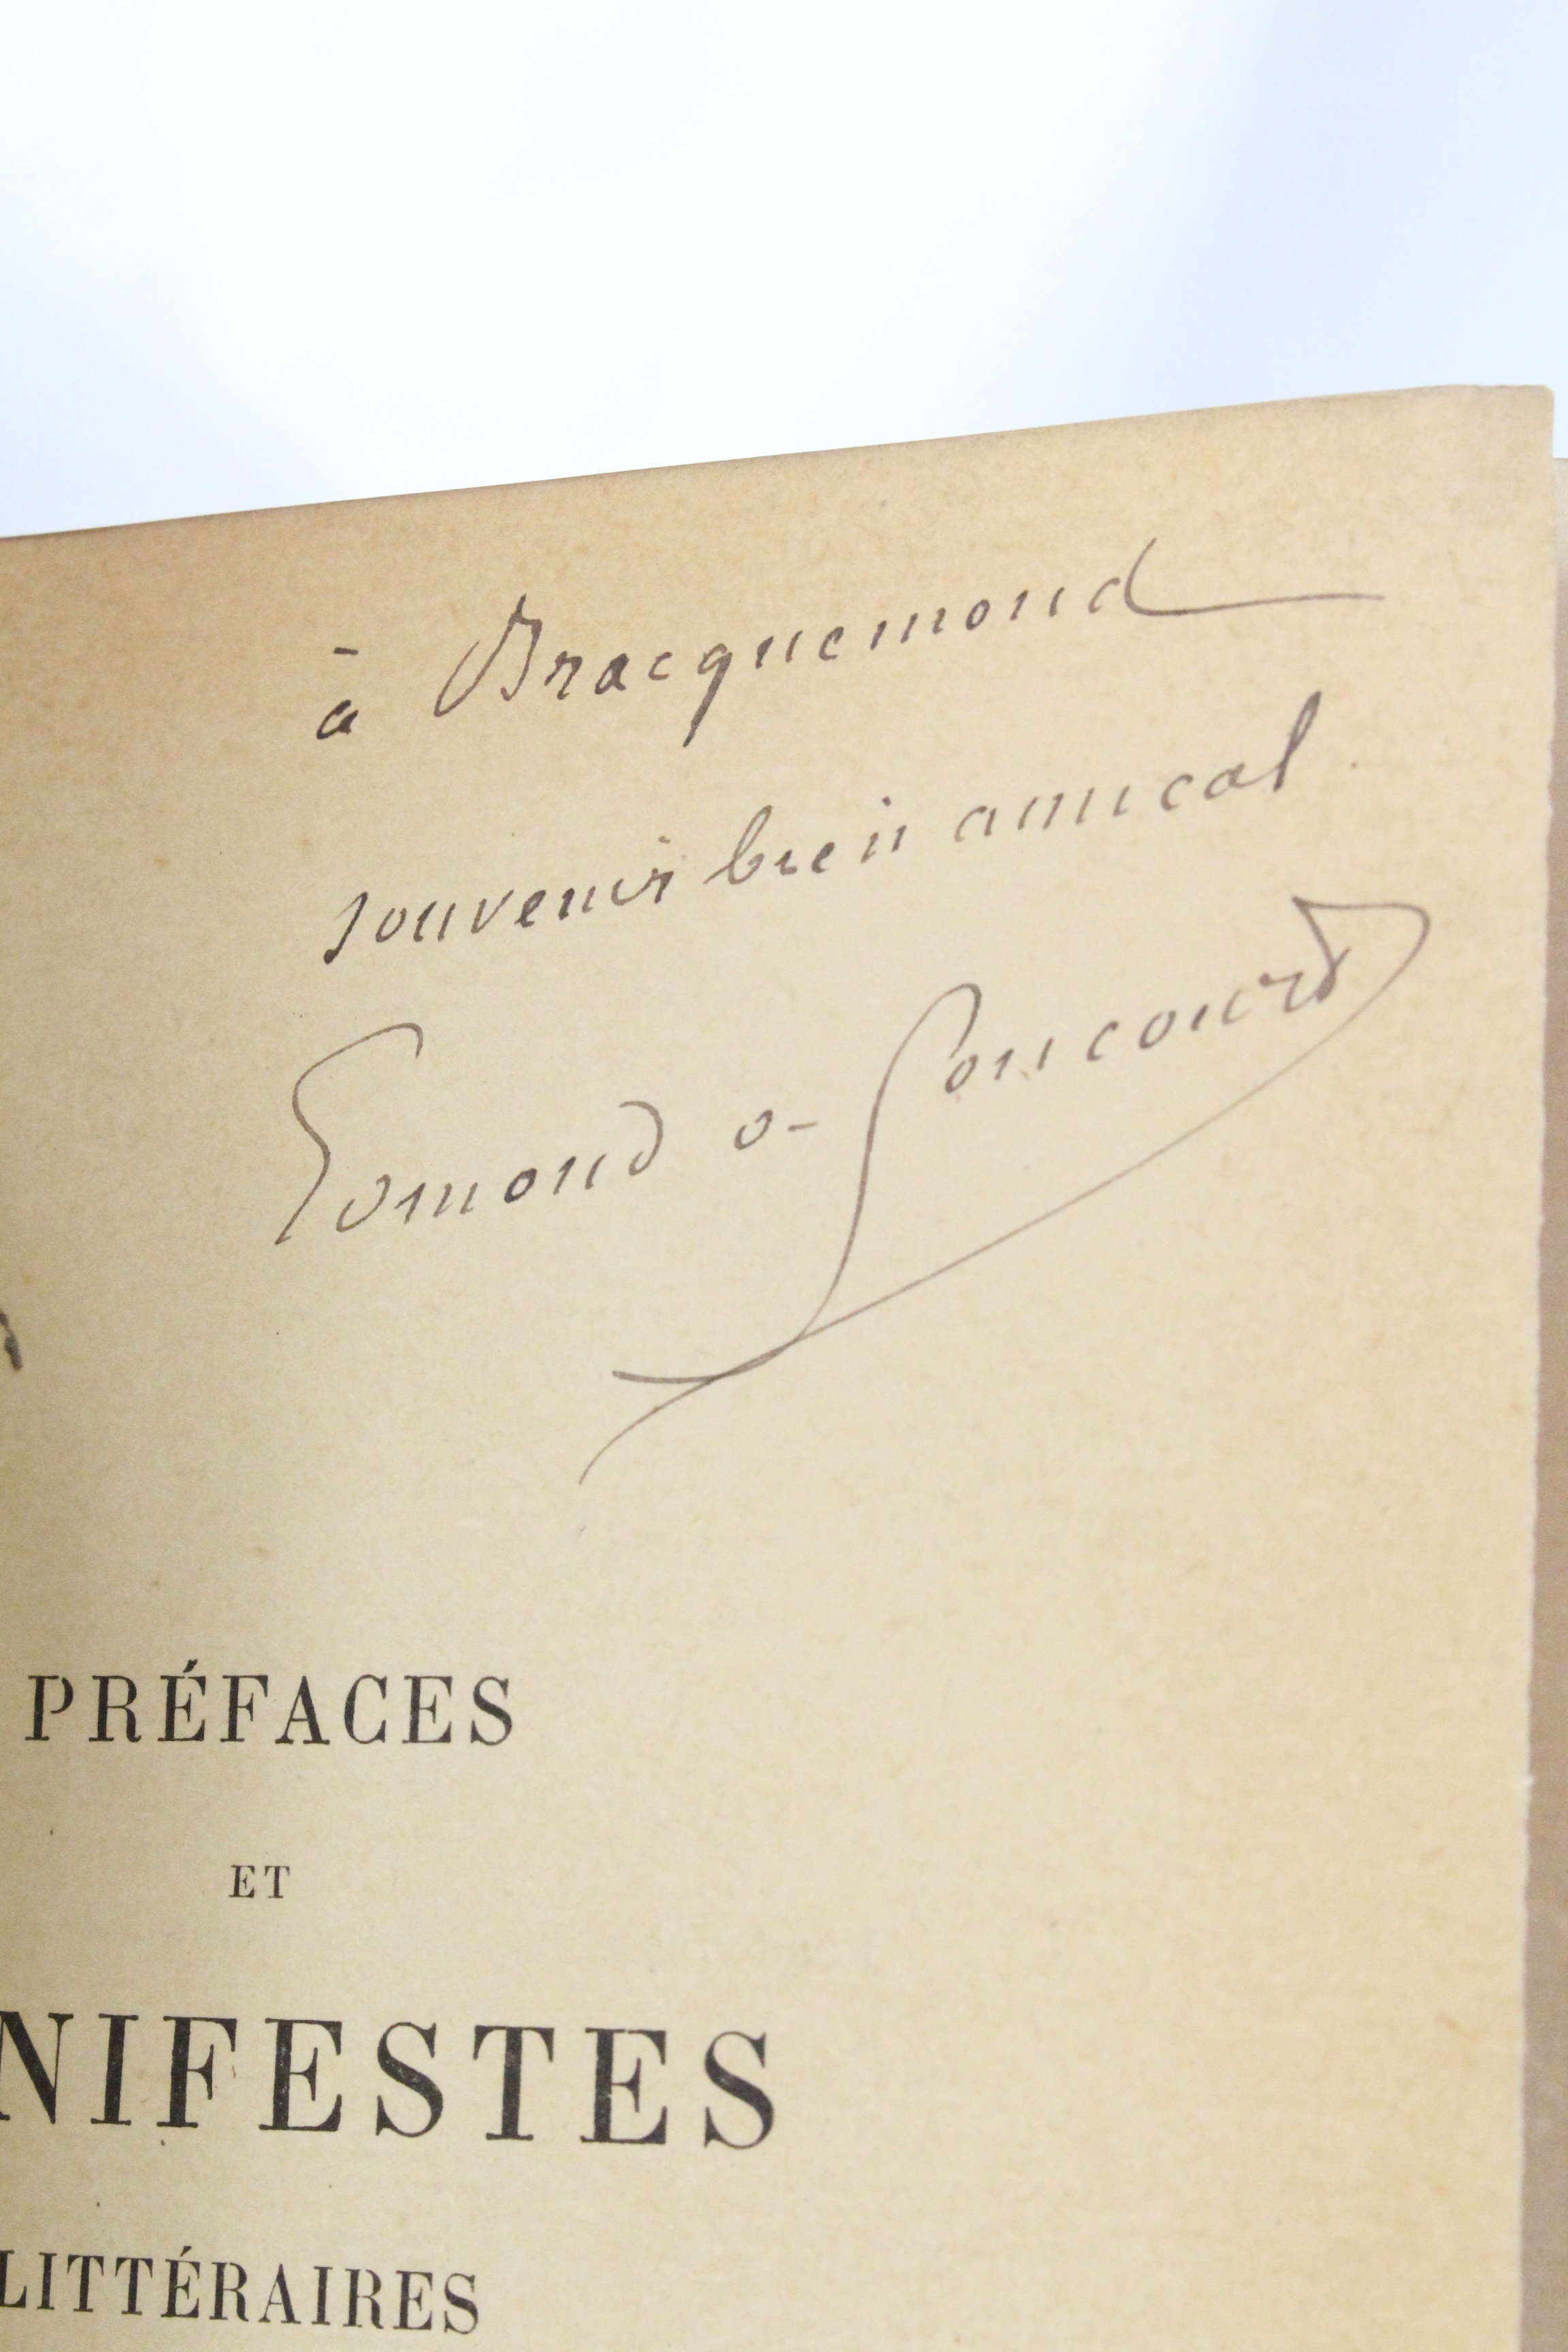 à Bracquemond
souvenir bien amical
Edmond de Goncourt
PRÉFACES
ET
NIFESTES
LITTÉRAIRES